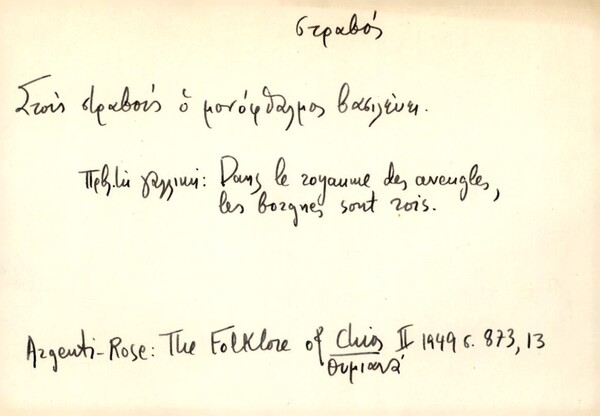 στραβός
Στούς στραβούς ὁ μονόφθαλμος βασιλεύει.
Πρβ. τὴ γαλλική: Dans le royaume des aveugles,
les borgnes sont rois.
Argenti-Rose: The Folklore of Chios II 1949 σ. 873, 13
Θυμιανά